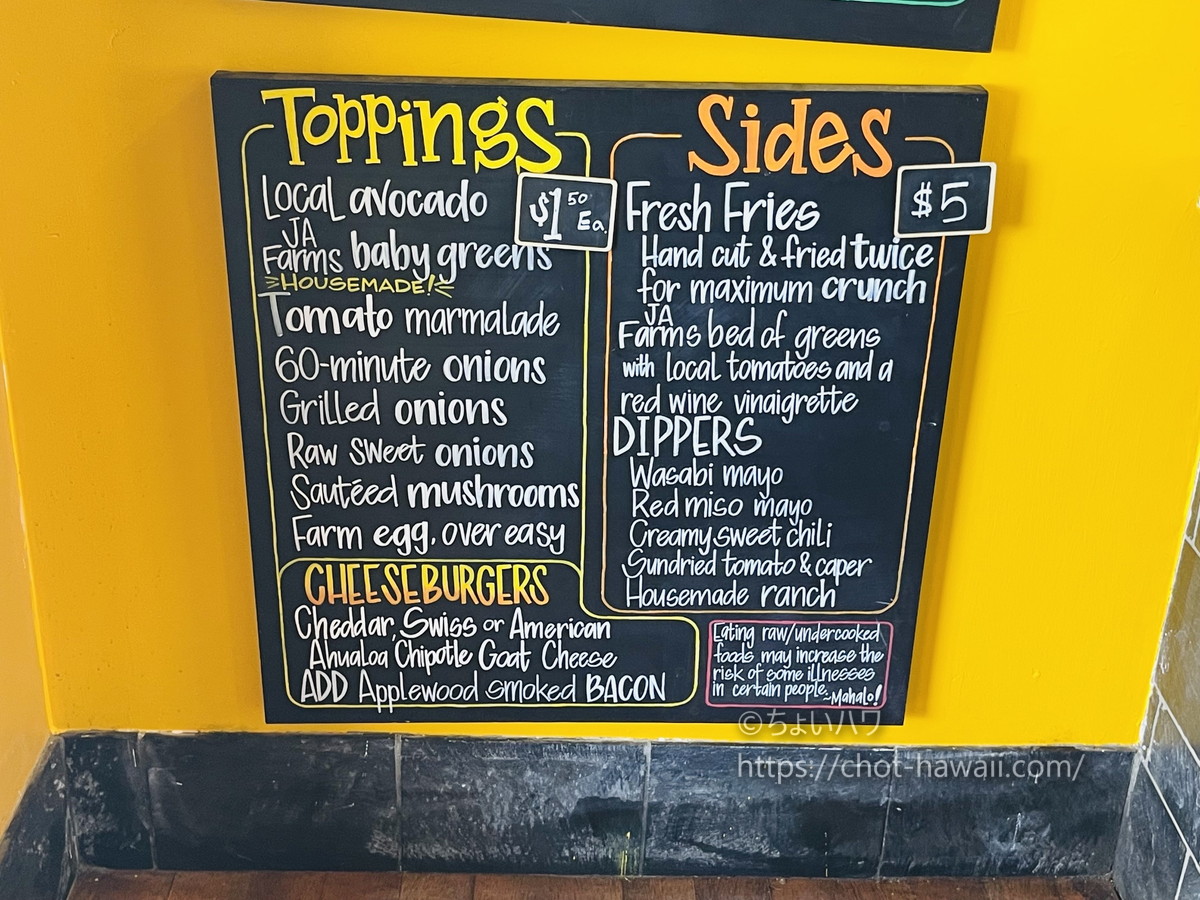 Toppings
$1 50 Ea.
Local avocado
JA
Farms baby greens
HOUSEMADE!
Tomato marmalade
60-minute onions
Grilled onions
Raw sweet onions
Sautéed mushrooms
Farm egg, over easy
CHEESEBURGERS
Cheddar, Swiss or American
Ahualoa Chipotle Goat Cheese
ADD Applewood smoked BACON
Sides
$5
Fresh Fries
Hand cut & fried twice
for maximum crunch
JA
Farms bed of greens
with local tomatoes and a
red wine vinaigrette
DIPPERS
Wasabi mayo
Red miso mayo
Creamy sweet chili
Sundried tomato & caper
Housemade ranch
Eating raw/undercooked
foods may increase the
risk of some illnesses
in certain people. ~Mahalo!
©ちょいハワ
https://chot-hawaii.com/